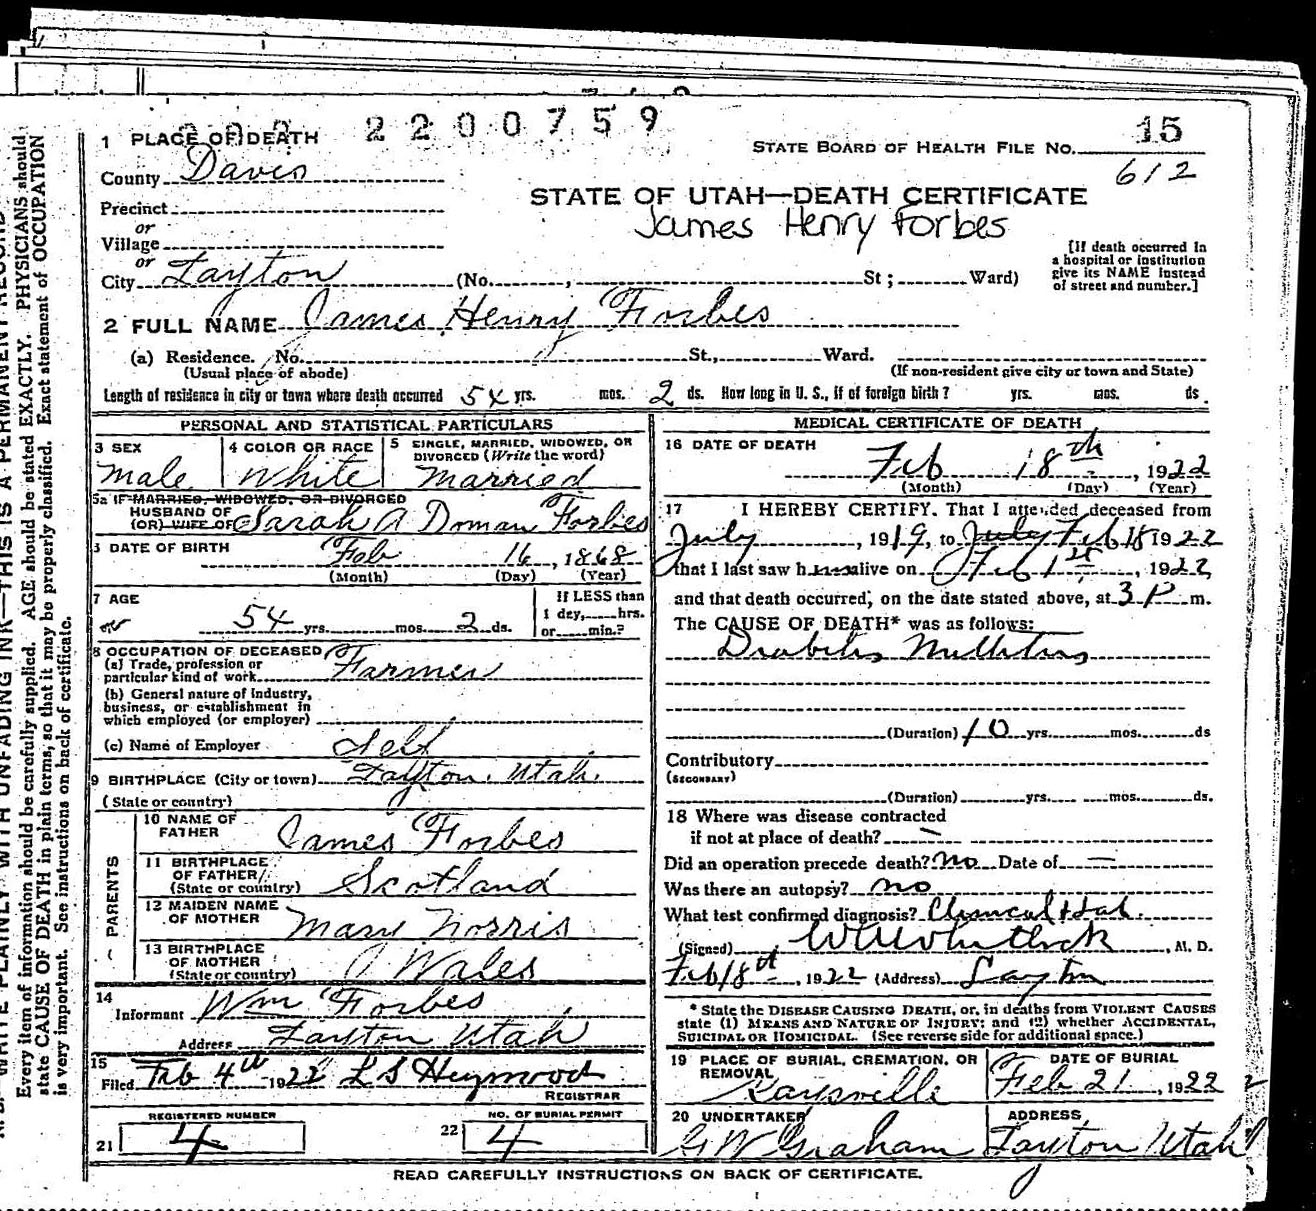 2200759
15
1 PLACE OF DEATH
STATE BOARD OF HEALTH FILE No.
612
County Davis
STATE OF UTAH—DEATH CERTIFICATE
Precinct
James Henry Forbes
or
Village
or
City Layton (No. , St ; Ward)
[If death occurred in
a hospital or institution
give its NAME instead
of street and number.]
2 FULL NAME James Henry Forbes
(a) Residence. No. St., Ward.
(Usual place of abode) (If non-resident give city or town and State)
Length of residence in city or town where death occurred 54 yrs. mos. 2 ds. How long in U. S., if of foreign birth? yrs. mos. ds.
PERSONAL AND STATISTICAL PARTICULARS
3 SEX
Male
4 COLOR OR RACE
White
5 SINGLE, MARRIED, WIDOWED, OR
DIVORCED (Write the word)
Married
5a IF MARRIED, WIDOWED, OR DIVORCED
HUSBAND OF
(OR) WIFE OF Sarah A Doman Forbes
6 DATE OF BIRTH Feb 16, 1868
(Month) (Day) (Year)
7 AGE
54 yrs. mos. 2 ds.
If LESS than
1 day, hrs.
or min.?
8 OCCUPATION OF DECEASED
(a) Trade, profession or
particular kind of work Farmer
(b) General nature of industry,
business, or establishment in
which employed (or employer)
(c) Name of Employer Self
9 BIRTHPLACE (City or town) Layton. Utah.
(State or country)
PARENTS
10 NAME OF
FATHER James Forbes
11 BIRTHPLACE
OF FATHER
(State or country) Scotland
12 MAIDEN NAME
OF MOTHER Mary Norris
13 BIRTHPLACE
OF MOTHER
(State or country) Wales
14
Informant Wm Forbes
Address Layton Utah
15
Filed Feb 4th 1922 L S Heywood
REGISTRAR
REGISTERED NUMBER
21 4
NO. OF BURIAL PERMIT
22 4
MEDICAL CERTIFICATE OF DEATH
16 DATE OF DEATH
Feb 18th, 1922
(Month) (Day) (Year)
17 I HEREBY CERTIFY. That I attended deceased from
July, 1919, to July Feb 18 1922
that I last saw him alive on Feb 1st, 1922
and that death occurred, on the date stated above, at 3 P m.
The CAUSE OF DEATH* was as follows:
Diabetis Millitus
(Duration) 10 yrs. mos. ds
Contributory
(SECONDARY)
(Duration) yrs. mos. ds.
18 Where was disease contracted
if not at place of death? —
Did an operation precede death? no Date of —
Was there an autopsy? no
What test confirmed diagnosis? Clinical
(Signed) W A Whitlock, M. D.
Feb 18th, 1922 (Address) Layton
* State the DISEASE CAUSING DEATH, or, in deaths from VIOLENT CAUSES
state (1) MEANS AND NATURE OF INJURY; and (2) whether ACCIDENTAL,
SUICIDAL OR HOMICIDAL. (See reverse side for additional space.)
19 PLACE OF BURIAL, CREMATION, OR
REMOVAL
Kaysville
DATE OF BURIAL
Feb 21, 1922
20 UNDERTAKER
G W Graham
ADDRESS
Layton Utah
READ CAREFULLY INSTRUCTIONS ON BACK OF CERTIFICATE.
WRITE PLAINLY WITH UNFADING INK—THIS IS A PERMANENT RECORD
Every item of information should be carefully supplied. AGE should be stated EXACTLY. PHYSICIANS should
state CAUSE OF DEATH in plain terms, so that it may be properly classified. Exact statement of OCCUPATION
is very important. See instructions on back of certificate.